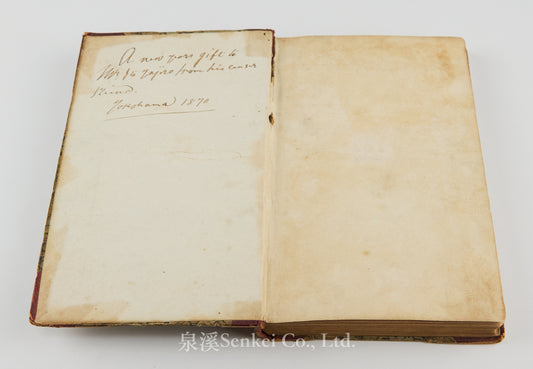 A new years gift to
Mr Ito from his
Yokohama 1870
泉溪Senkei Co., Ltd.